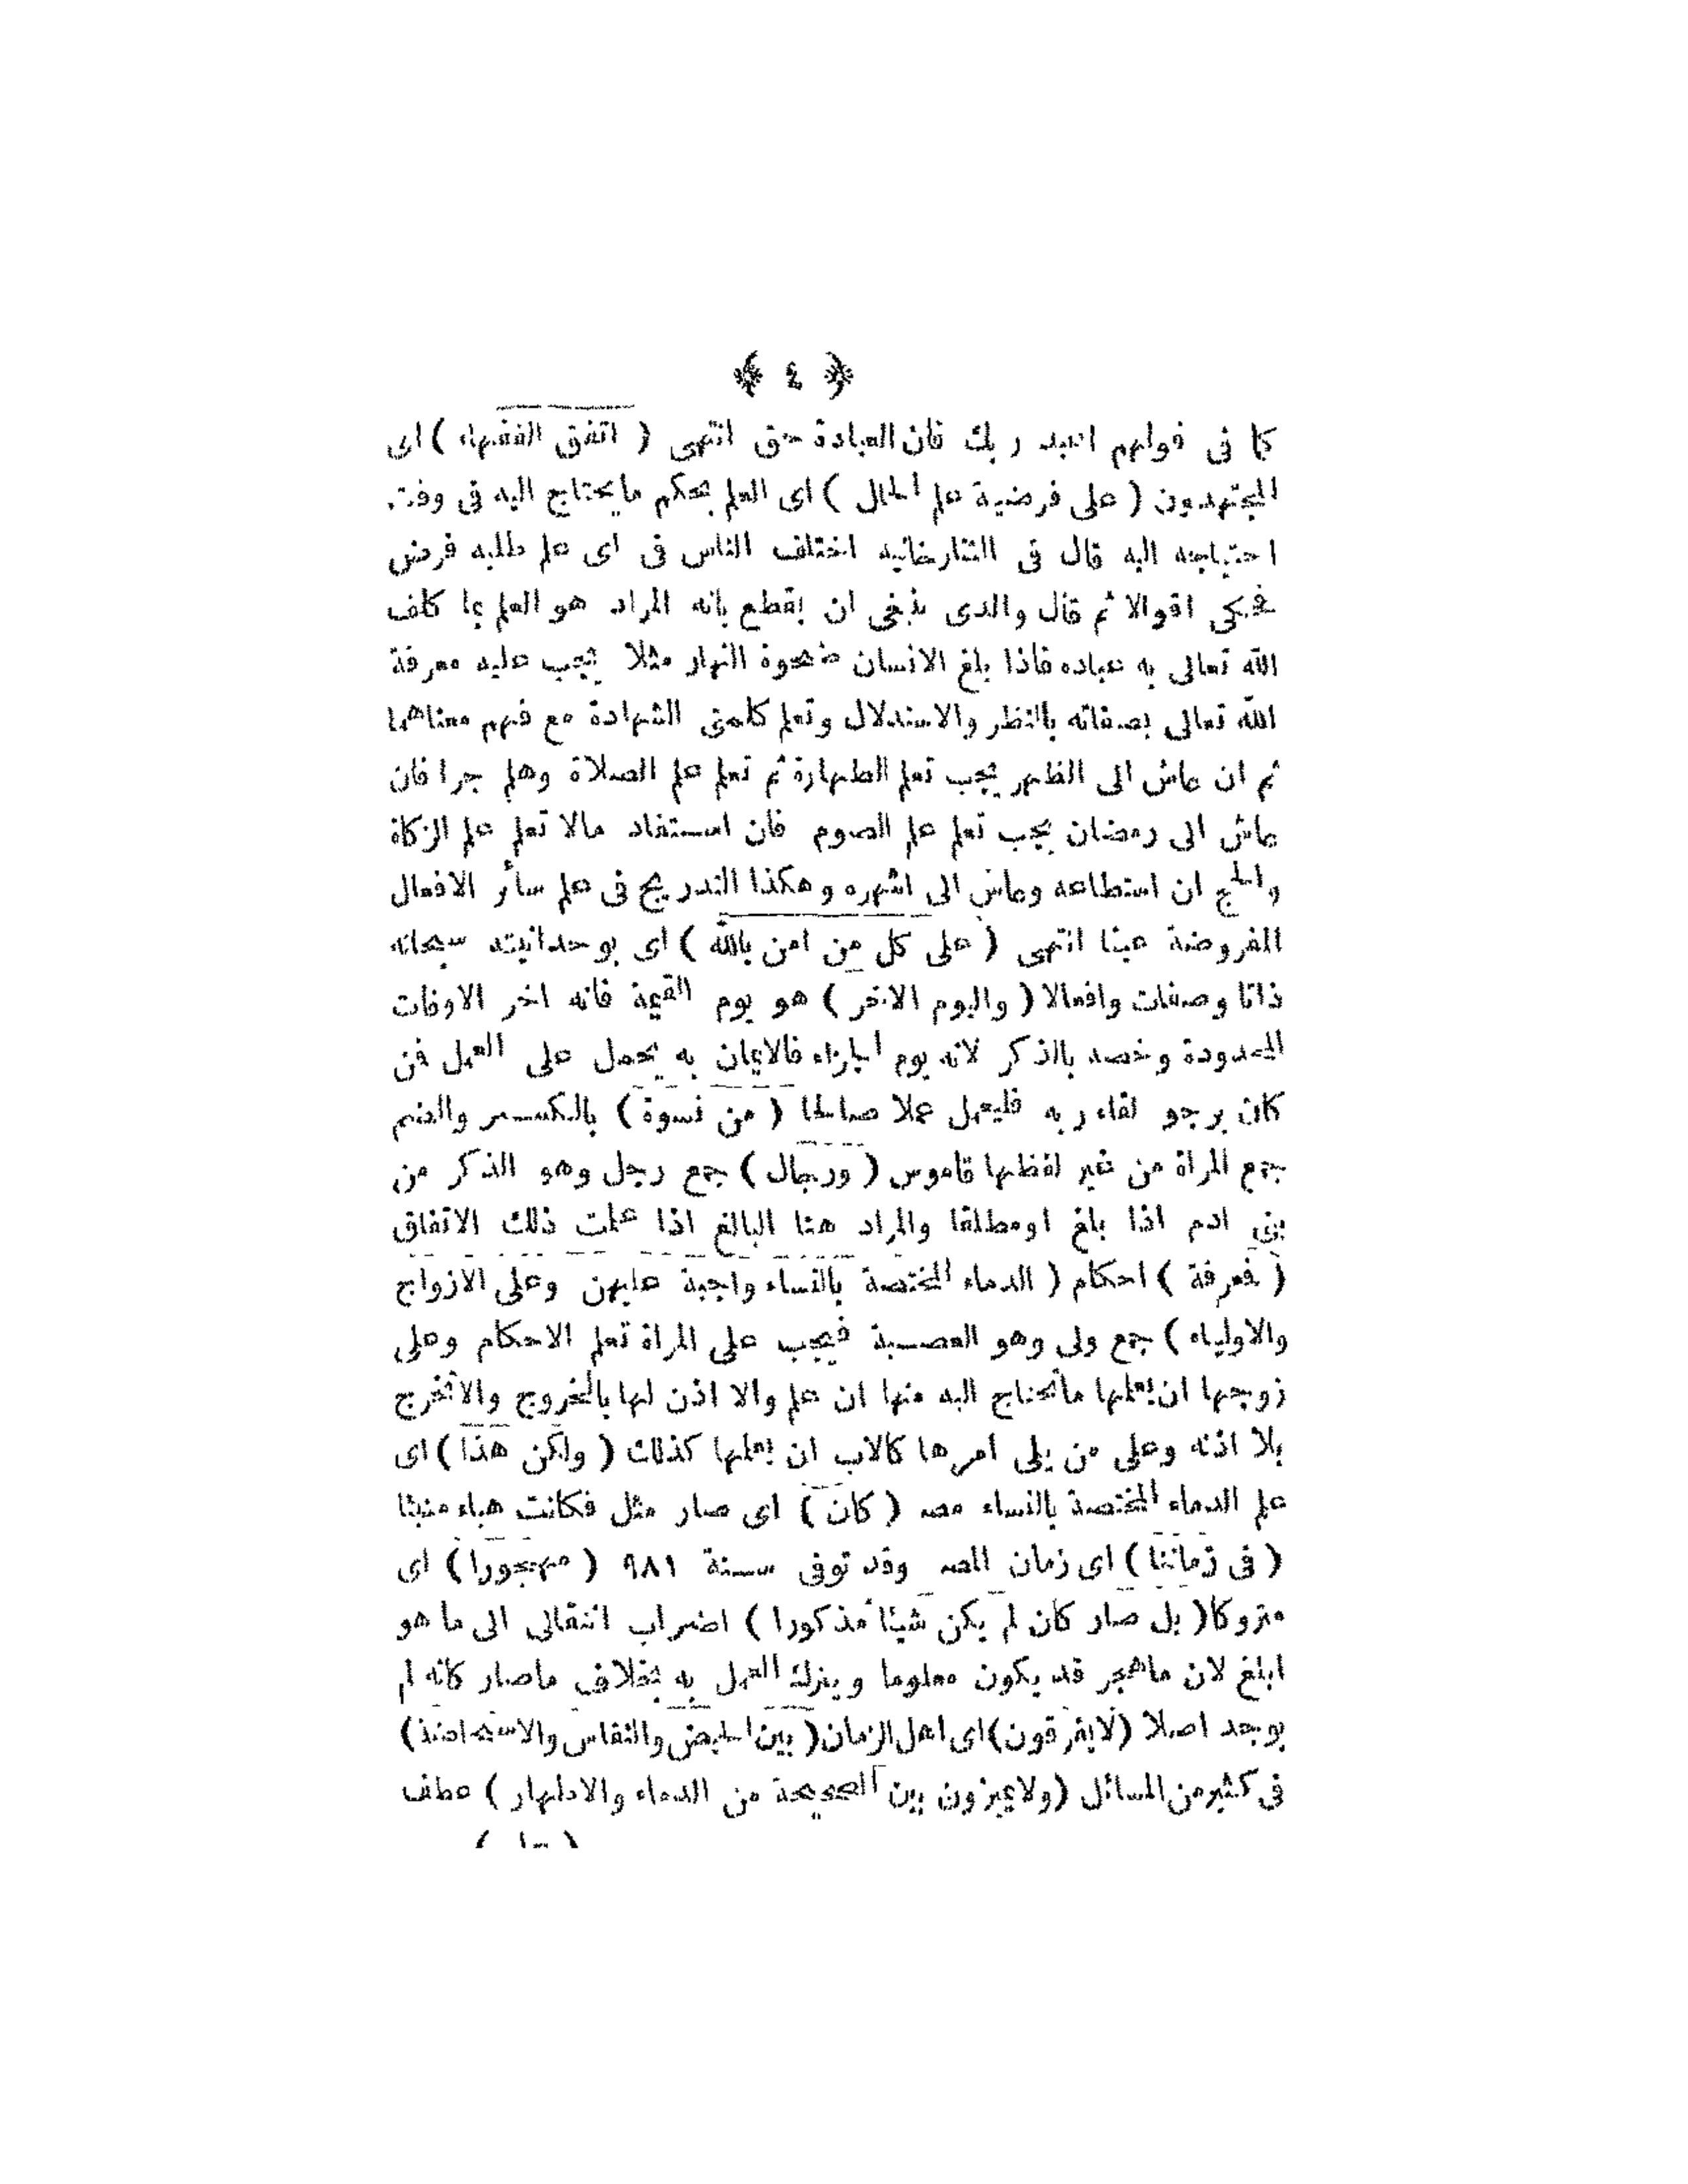 ﴿ ٤ ﴾
كما فى قولهم اعبد ربك فان العبادة حق انتهى ( اتفق الفقهاء ) اى
المجتهدون ( على فرضية علم الحال ) اى العلم بحكم ما يحتاج اليه فى وقت
احتياجه اليه قال فى التتارخانيه اختلف الناس فى اى علم طلبه فرض
فحكى اقوالا ثم قال والذى ينبغى ان يقطع بانه المراد هو العلم بما كلف
الله تعالى به عباده فاذا بلغ الانسان ضحوة النهار مثلا يجب عليه معرفة
الله تعالى بصفاته بالنظر والاستدلال وتعلم كلمتى الشهادة مع فهم معناهما
ثم ان عاش الى الظهر يجب تعلم الطهارة ثم تعلم علم الصلاة وهلم جرا فان
عاش الى رمضان يجب تعلم علم الصوم فان استفاد مالا تعلم علم الزكاة
والحج ان استطاعه وعاش الى اشهره وهكذا التدريج فى علم سائر الافعال
المفروضة عينا انتهى ( على كل من امن بالله ) اى بوحدانيته سبحانه
ذاتا وصفات وافعالا ( واليوم الاخر ) هو يوم القيمة فانه اخر الاوقات
المحدودة وخصه بالذكر لانه يوم الجزاء فالايمان به يحمل على العمل فمن
كان يرجو لقاء ربه فليعمل عملا صالحا ( من نسوة ) بالكسر والضم
جمع المراة من غير لفظها قاموس ( ورجال ) جمع رجل وهو الذكر من
بنى ادم اذا بلغ اومطلقا والمراد هنا البالغ اذا علمت ذلك الاتفاق
( فمعرفة ) احكام ( الدماء المختصة بالنساء واجبة عليهن وعلى الازواج
والاولياء ) جمع ولى وهو العصبة فيجب على المراة تعلم الاحكام وعلى
زوجها ان يعلمها ماتحتاج اليه منها ان علم والا اذن لها بالخروج والاتخرج
بلا اذنه وعلى من يلى امرها كالاب ان يعلمها كذلك ( ولكن هذا ) اى
علم الدماء المختصة بالنساء مصه ( كان ) اى صار مثل فكانت هباء منبثا
( فى زماننا ) اى زمان المصه وقد توفى سنة ٩٨١ ( مهجورا ) اى
متروكا ( بل صار كان لم يكن شيئا مذكورا ) اضراب انتقالى الى ما هو
ابلغ لان ماهجر قد يكون معلوما ويترك العمل به بخلاف ماصار كانه لم
يوجد اصلا ( لايفرقون ) اى اهل الزمان ( بين الحيض والنفاس والاستحاضة )
فى كثير من المسائل ( ولا يميزون بين الصحيحة من الدماء والاطهار ) عطف